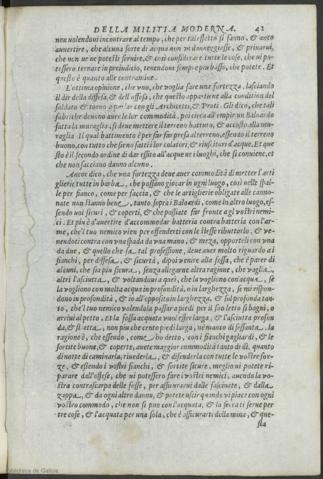 DELLA MILITIA MODERNA. 42
non volendoui incontrare al tempo, che per tal effetto si fanno, & anco
auuertire, che alcuna sorte di acqua non vi danneggiasse, & priuarui,
che non ve ne potessi seruire, & così considerare tutte le cose, che vi potessero
tornare in preiudicio, tenendoui sempre più basso, che potete. Et
questo è quanto alle contramine.
L'ottima opinione, che uno, che voglia fare una fortezza, lasciando
il dir della difesa, & dell'offesa, che questo appartiene alla condition del
soldato & torno à parlar con gli Architetti, & Proti. Gli dico, che tali
fabriche deuono auer le lor commodità, poi circa all'empir un Baloardo
fatto la muraglia, si deue mettere il terreno battuto, & accosto alla muraglia.
Il qual battimento è per far far presa al terreno, essendo il terreno
buono, con tutto che sieno fatti i lor colatori, & riusciture d'acque. Et questo
è il secondo ordine di dar essito all'acque ne i luoghi, che si conuiene, et
che non facciano danno alcuno.
Ancor dico, che una fortezza deue auer commodità di metter l'artiglierie
tutte in barba, che possano giocar in ogni luogo, così nelle spalle
per fianco, come per faccia, & che le artiglierie obligate alle cannonate
non stanno bene, tanto sopra i Baloardi, come in altro luogo, essendo
uoi sicuri, & coperti, & che possiate far fronte agl vostri nemici.
Et più è d'auertire d'accommodar batteria contra batteria con l'arme,
che'l tuo nemico vien per offenderti con le stesse ributtarlo, & venendoti
contra con una spada da una mano, & meza, opporteli con una
da due, & quello che fa tal professione, deue auer molto riguardo ai
fianchi, per difesa, & sicurtà, dipoi venire alla fossa, che è parer di
alcuni, che sia più sicura, senza allegarne altra ragione, che vaglia,
altri l'asciutta, & voltandomi a quei, che la vogliono con acqua, se
la vogliono con molta acqua in profondità, o in larghezza, se mi rispondono
in profondità, & io all'opposito in larghezza, & sul profonda tanto,
che'l tuo nemico volendola passar a piedi per il suo letto si bagni, o
arriui al petto, Et la fossa acquata vuol esser larga, & l'asciutta profonda,
& stretta, non più che cento piedi larga, nè manco di sessanta, la
ragione è, che essendo, come ho detto, con i fianchi gagliardi, & le
sortite buone, & coperte, auete maggior commodità tanto di dì, quanto
di notte di caminarla, riuederla, & difenderla con tutte le vostre forze,
& essendo i vostri fianchi, & sortite sicure, meglio vi potete riparare
dall'offese, che vi potessero fare i vostri nemici, auendo la vostra
contrascarpa delle fosse, per assicurarui dalle fascinate, & dalla
zappa, & da ogni altro danno, & potete uscir quando vi piace con ogni
vostro commodo, che non si può con l'acquata, & la secca ti serue per
tre cose, & l'acquata per una sola, che è assicurarti della mina, & questa
sta